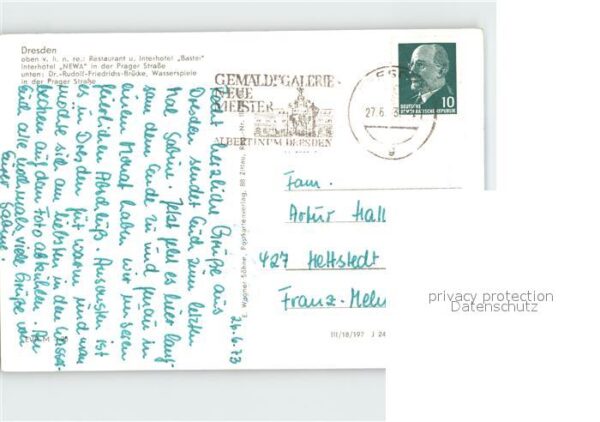 Dresden
oben v. li. n. re.: Restaurant u. Interhotel „Bastei"
Interhotel „NEWA" in der Prager Straße
unten: Dr.-Rudolf-Friedrichs-Brücke, Wasserspiele
in der Prager Straße
GEMÄLDEGALERIE
NEUE
MEISTER
ALBERTINUM DRESDEN
27.6.
DEUTSCHE
DEMOKRATISCHE REPUBLIK
10
26.6.73
herzliche Grüße aus
Dresden sendet Euch zum letzten
Mal Sabine. Jetzt geht es hier lang-
sam dem Ende zu und genau in
einem Monat haben wir unseren
feierlichen Abschluß. Ansonsten ist
es in Dresden für warm und man
möchte sich am liebsten in den Wasser-
becken auf dem Foto abkühlen. An
Euch alle nochmals viele Grüße von
Eurer Sabine.
Fam.
Artur Hall
427 Hettstedt
Franz-Mehr
E. Wagner Söhne, Postkartenverlag, 88 Zittau,
III/18/197 J 24
privacy protection
Datenschutz